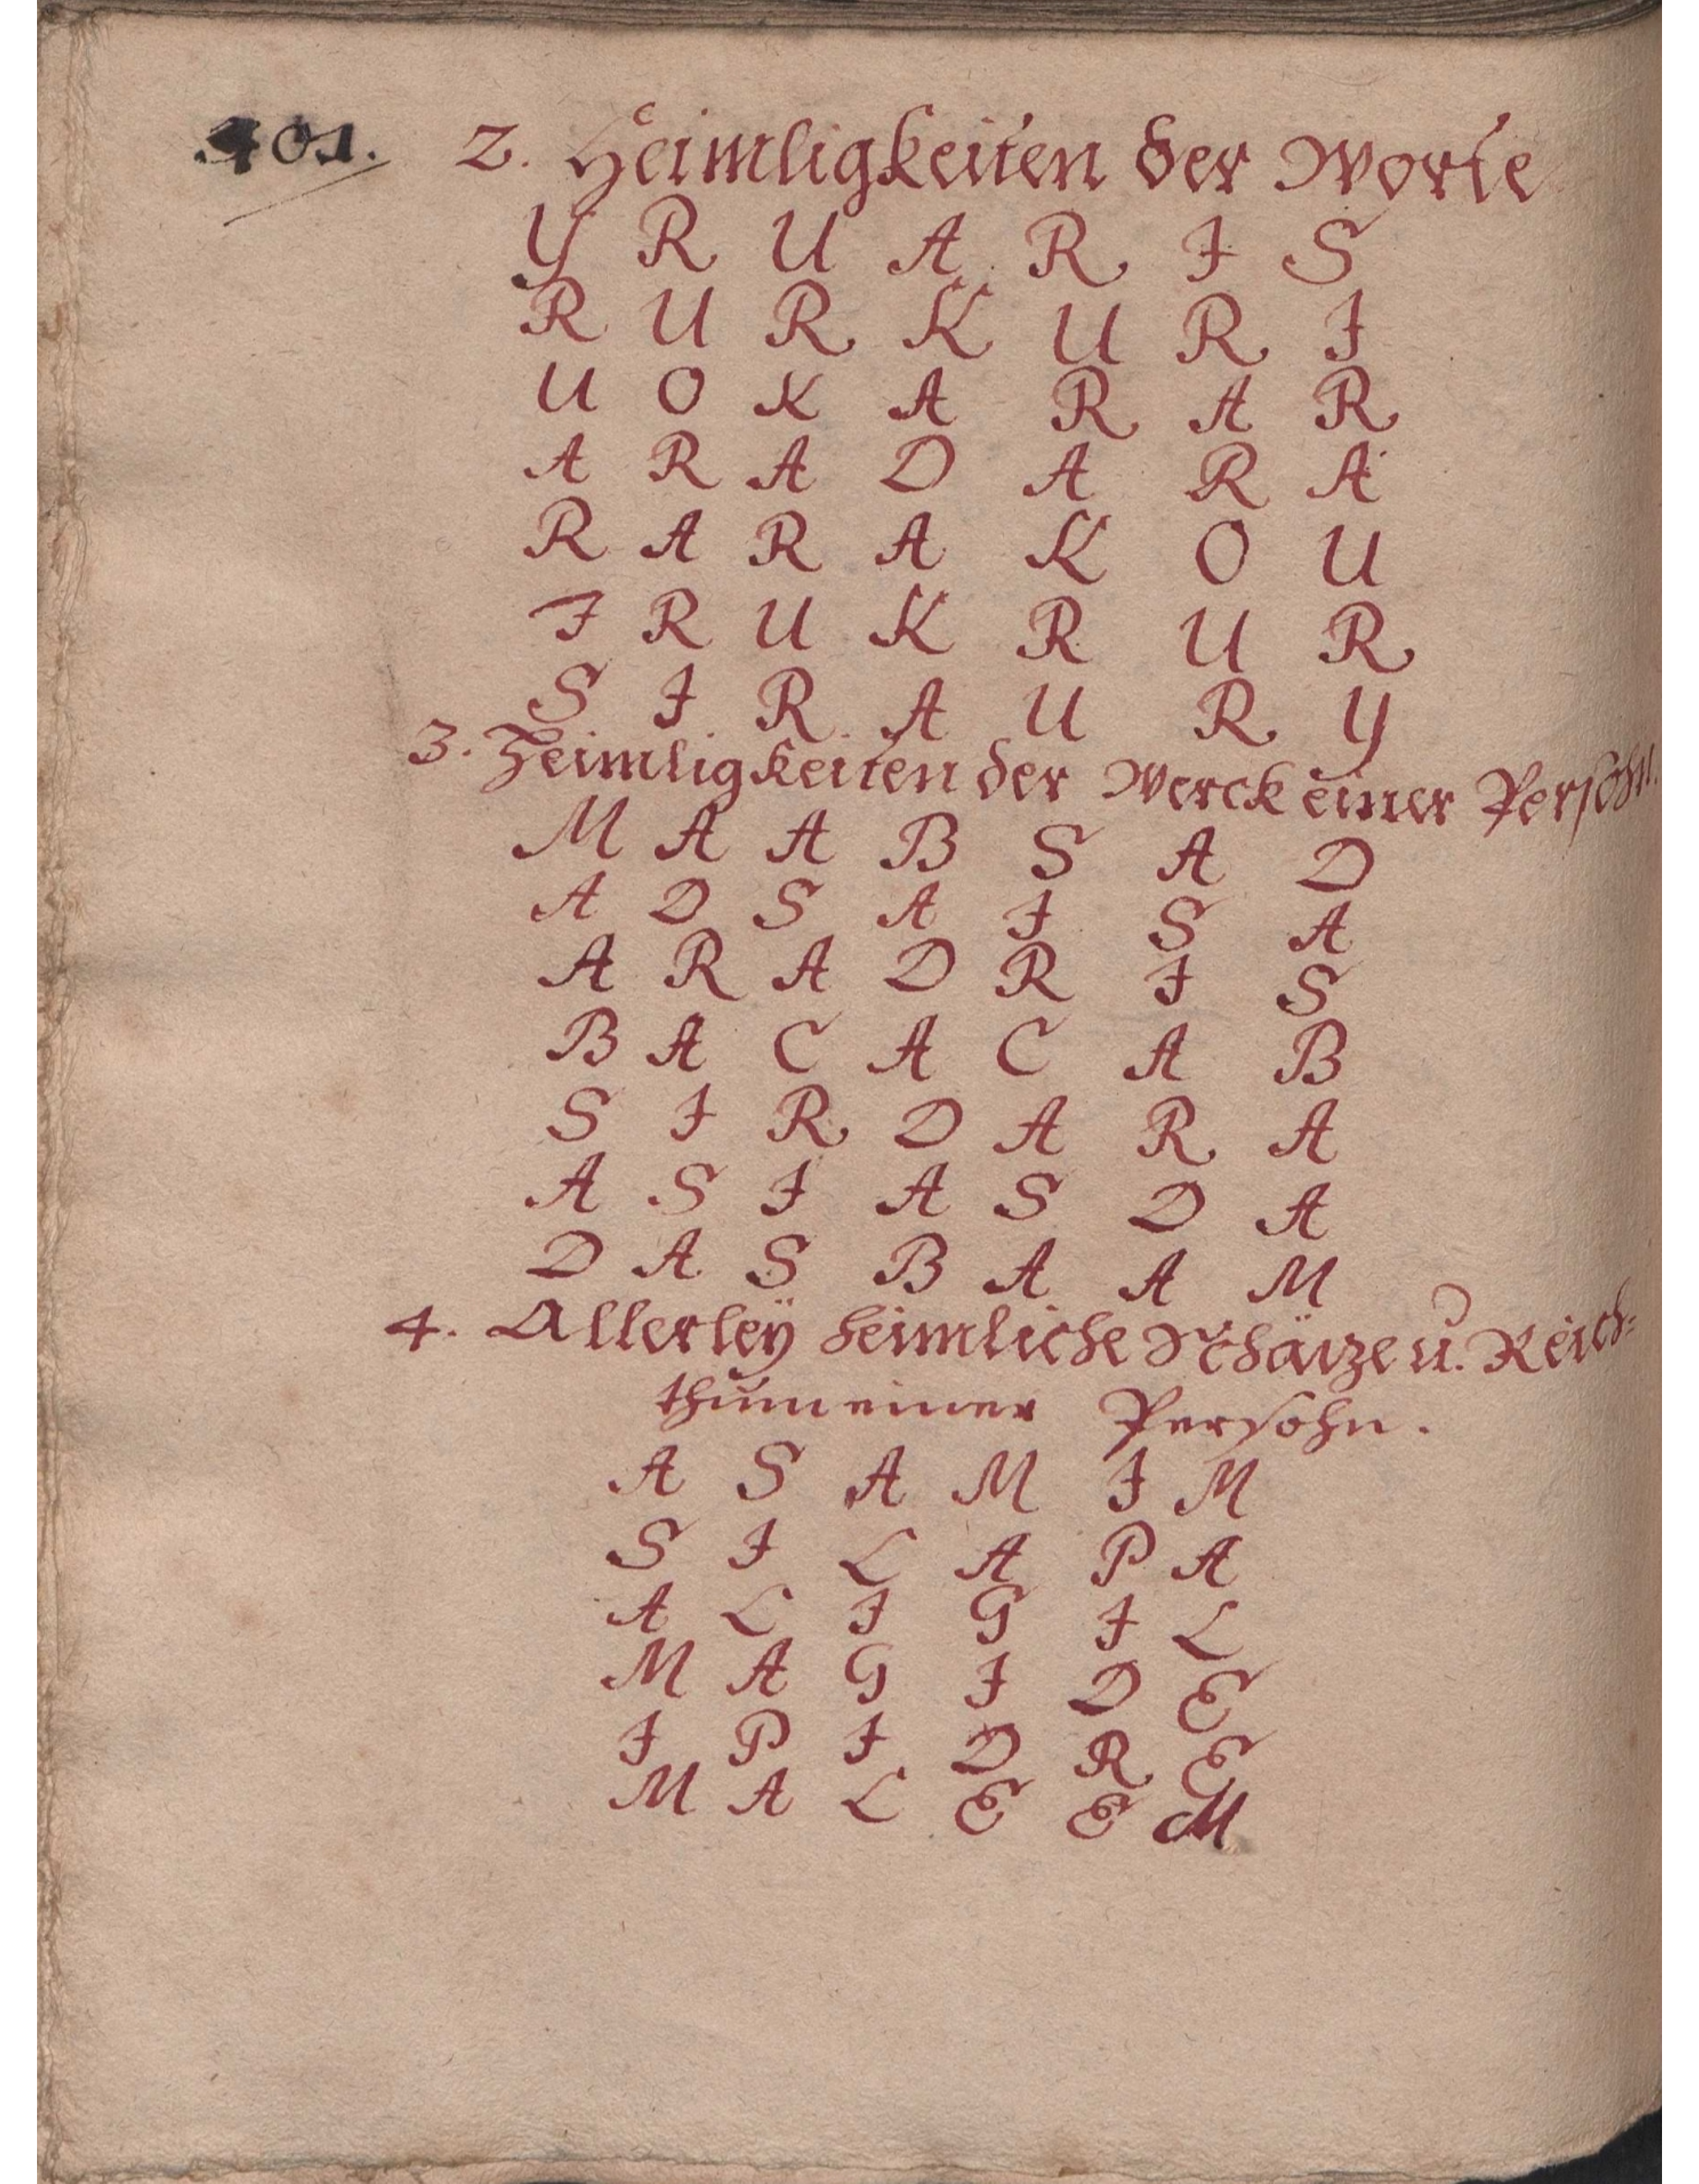 401. 2. Heimligkeiten der Worte
Y R U A R I S
R U R K U R I
U O K A R A R
A R A D A R A
R A R A K O U
I R U K R U R
S I R A U R Y
3. Heimligkeiten der Werck einer Persohn.
M A A B S A D
A D S A I S A
A R A D R I S
B A C A C A B
S I R D A R A
A S I A S D A
D A S B A A M
4. Allerleÿ heimliche Schätze u. Reich=
thum einer Persohn.
A S A M I M
S I L A P A
A L I G I L
M A G I D E
I P I D R E
M A L E E M